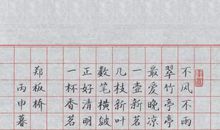 不风不雨
翠竹亭亭
最爱晚凉
一壶新茗
几枝新叶
数笔横皴
正好清明
一杯香茗
郑板桥
丙申暮